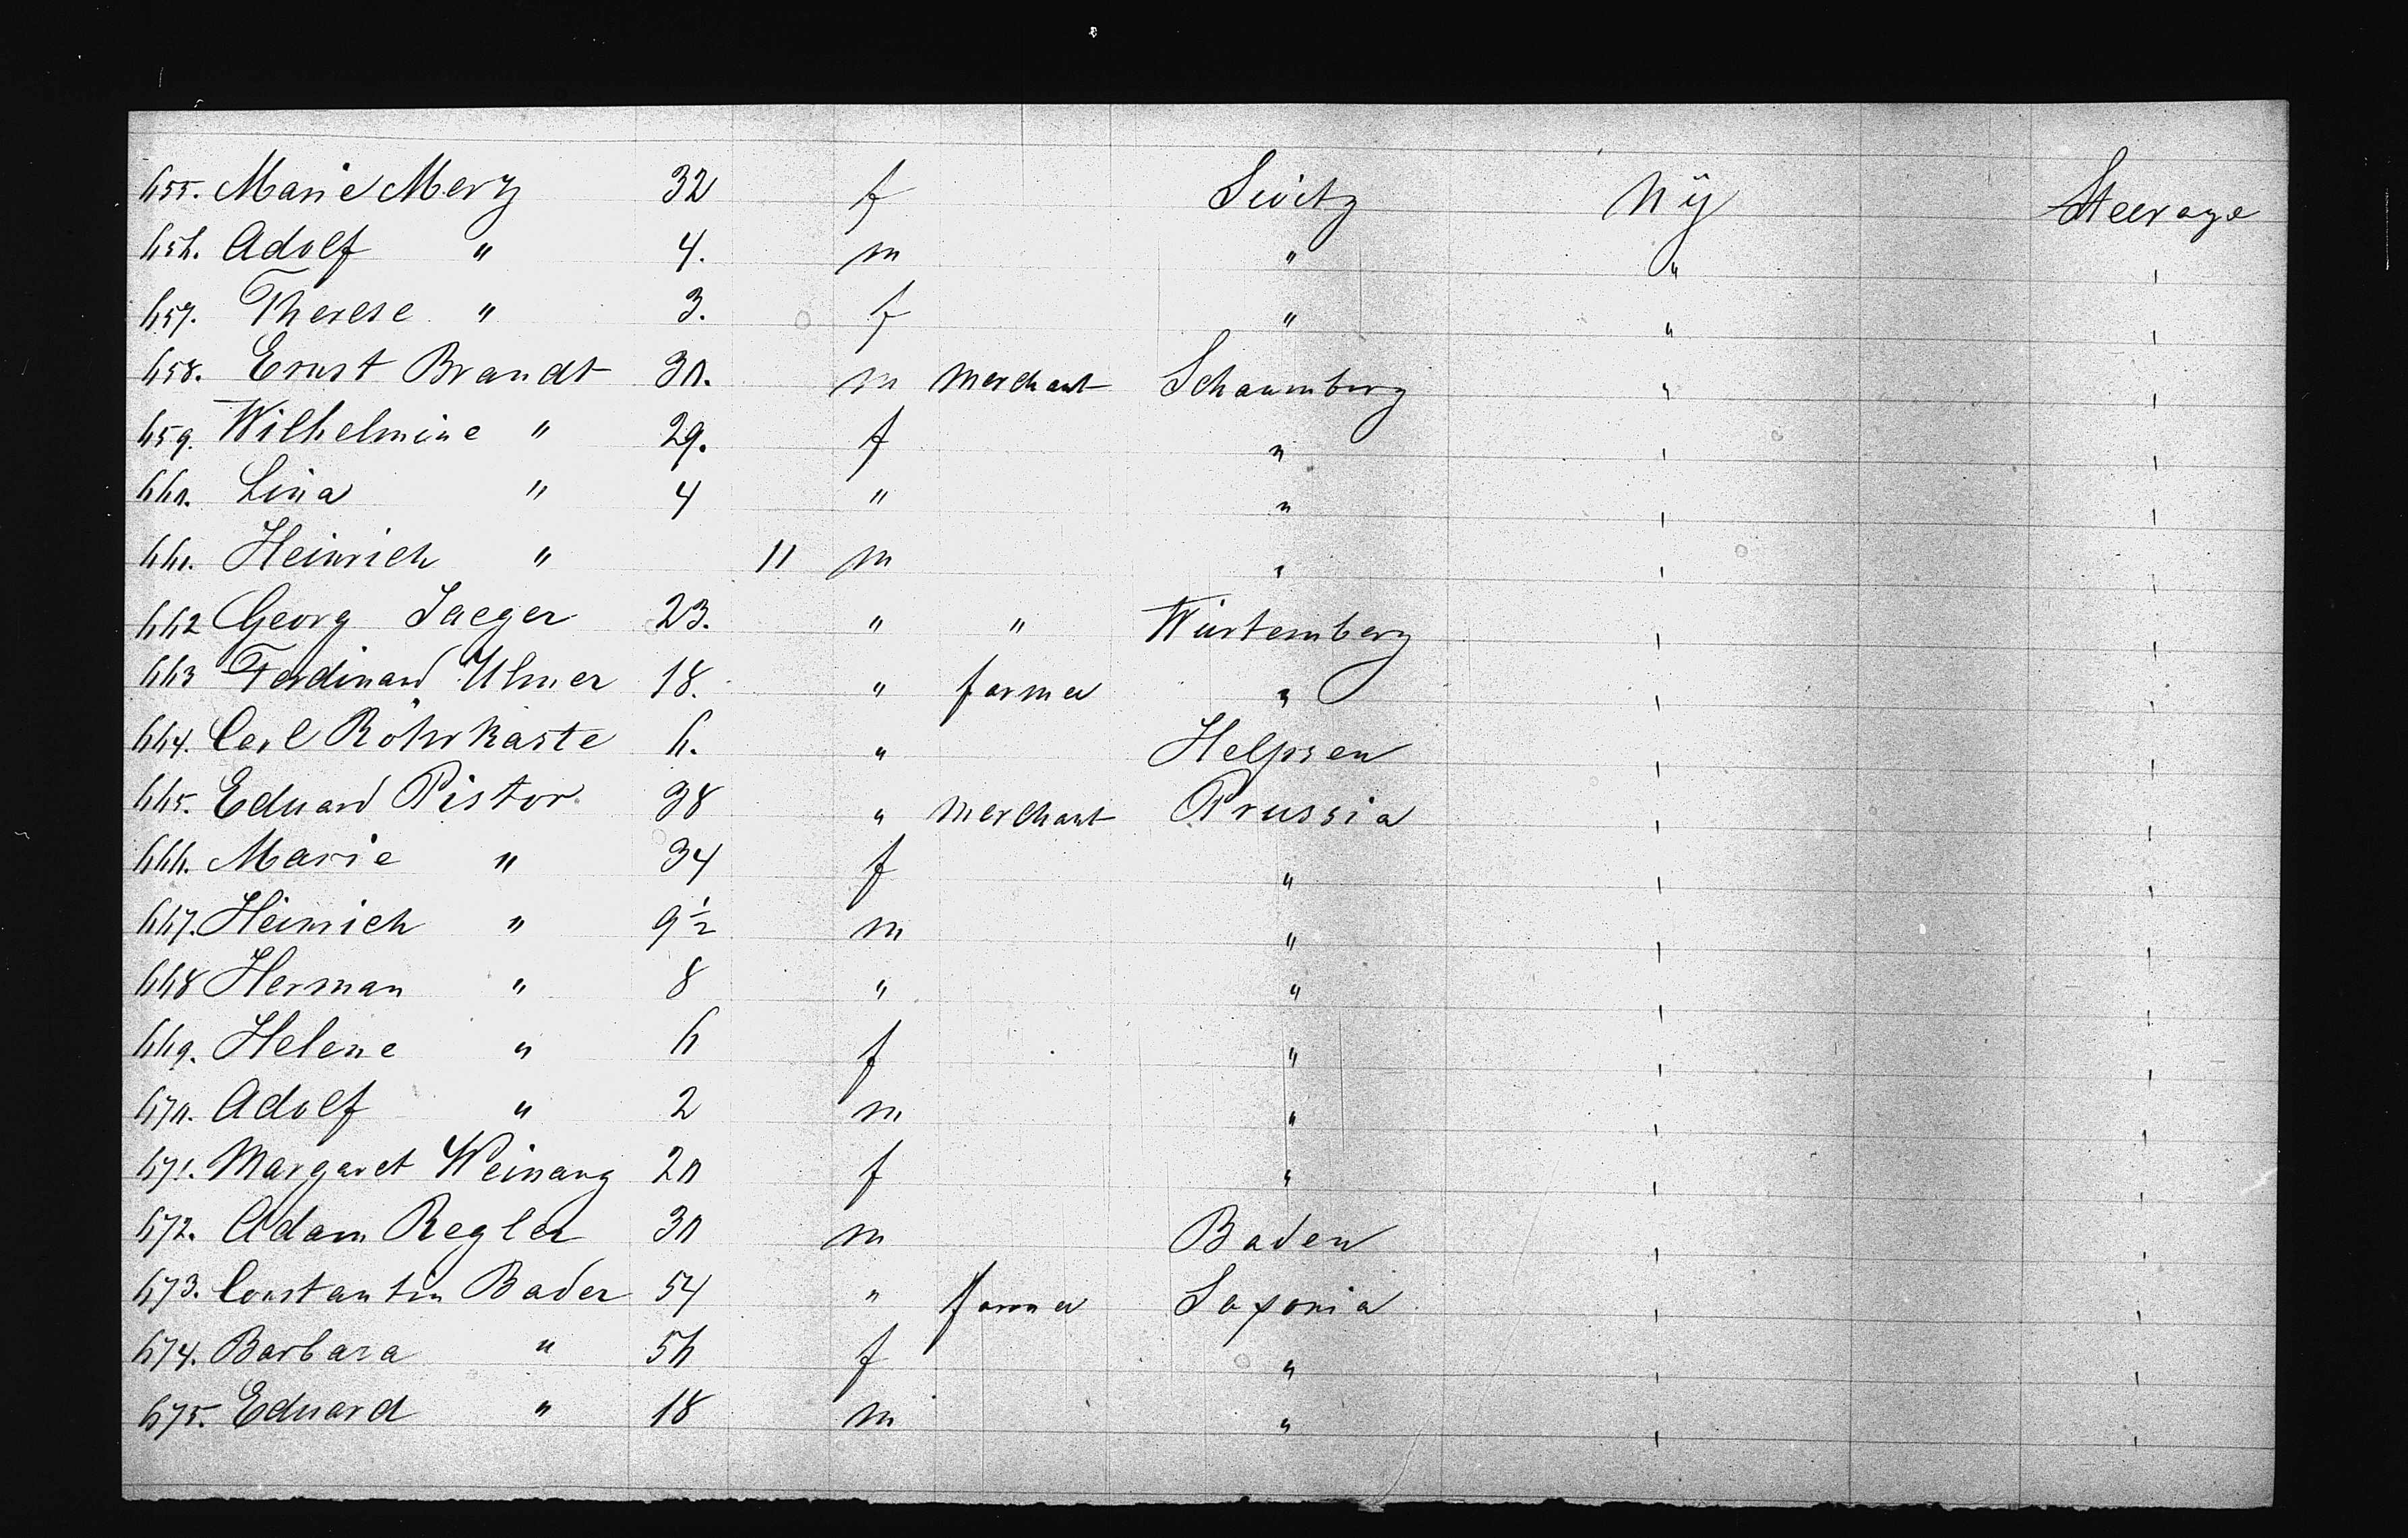 655. Marie Merz 32 f Switz NY Steerage
656. Adolf " 4. m " " '
657. Therese " 3. f " " '
658. Ernst Brandt 30. m Merchant Schaumberg " '
659. Wilhelmine " 29. f " ' '
660. Lina " 4 " " ' '
661. Heinrich " 11 m " ' '
662 Georg Jaeger 23. " " Würtemberg ' '
663 Ferdinand Ulmer 18. " farmer " ' '
664. Carl Röhrkaste 6. " Helpsen ' '
665. Eduard Pistor 38 " Merchant Prussia ' '
666. Marie " 34 f " ' '
667. Heinrich " 9½ m " ' '
668 Herman " 8 " " ' '
669. Helene " 6 f " ' '
670. Adolf " 2 m " ' '
671. Margaret Weinang 20 f " ' '
672. Adam Regler 30 m Baden ' '
673. Constantin Bader 54 " farmer Saxonia ' '
674. Barbara " 56 f " ' '
675. Eduard " 18 m " ' '